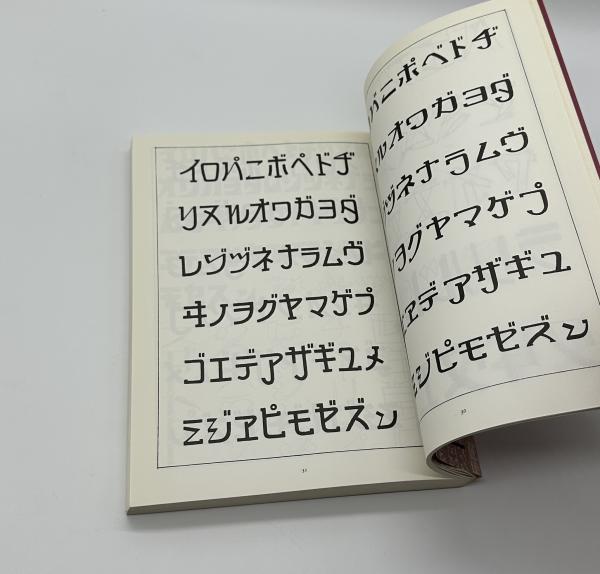 イロパニボペドヂ
リヌルオワガヨダ
レゾヅネナラムヴ
ヰノヲグヤマゲプ
ゴエデアザギユメ
ミジヱピモゼズン
31
パニポベドヂ
ルオワガヨダ
ヅネナラムヴ
ヲグヤマゲプ
エデアザギユ
ピモゼズン
30